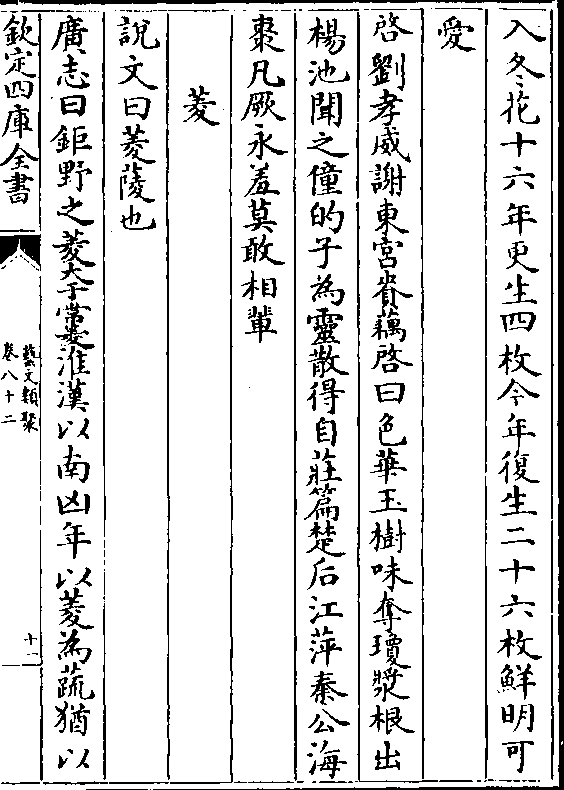 入冬花十六年更生四枚今年復生二十六枚鮮明可
愛
啓劉孝威謝東宮賚藕啓曰色華玉樹味奪瓊漿根出
楊池聞之僮的子為靈散得自莊篇楚后江萍秦公海
棗凡厥永羞莫敢相輩
菱
說文曰菱蔆也
廣志曰鉅野之菱大于常菱淮漢以南凶年以菱為蔬猶以
欽定四庫全書
藝文類聚
卷八十二
十一